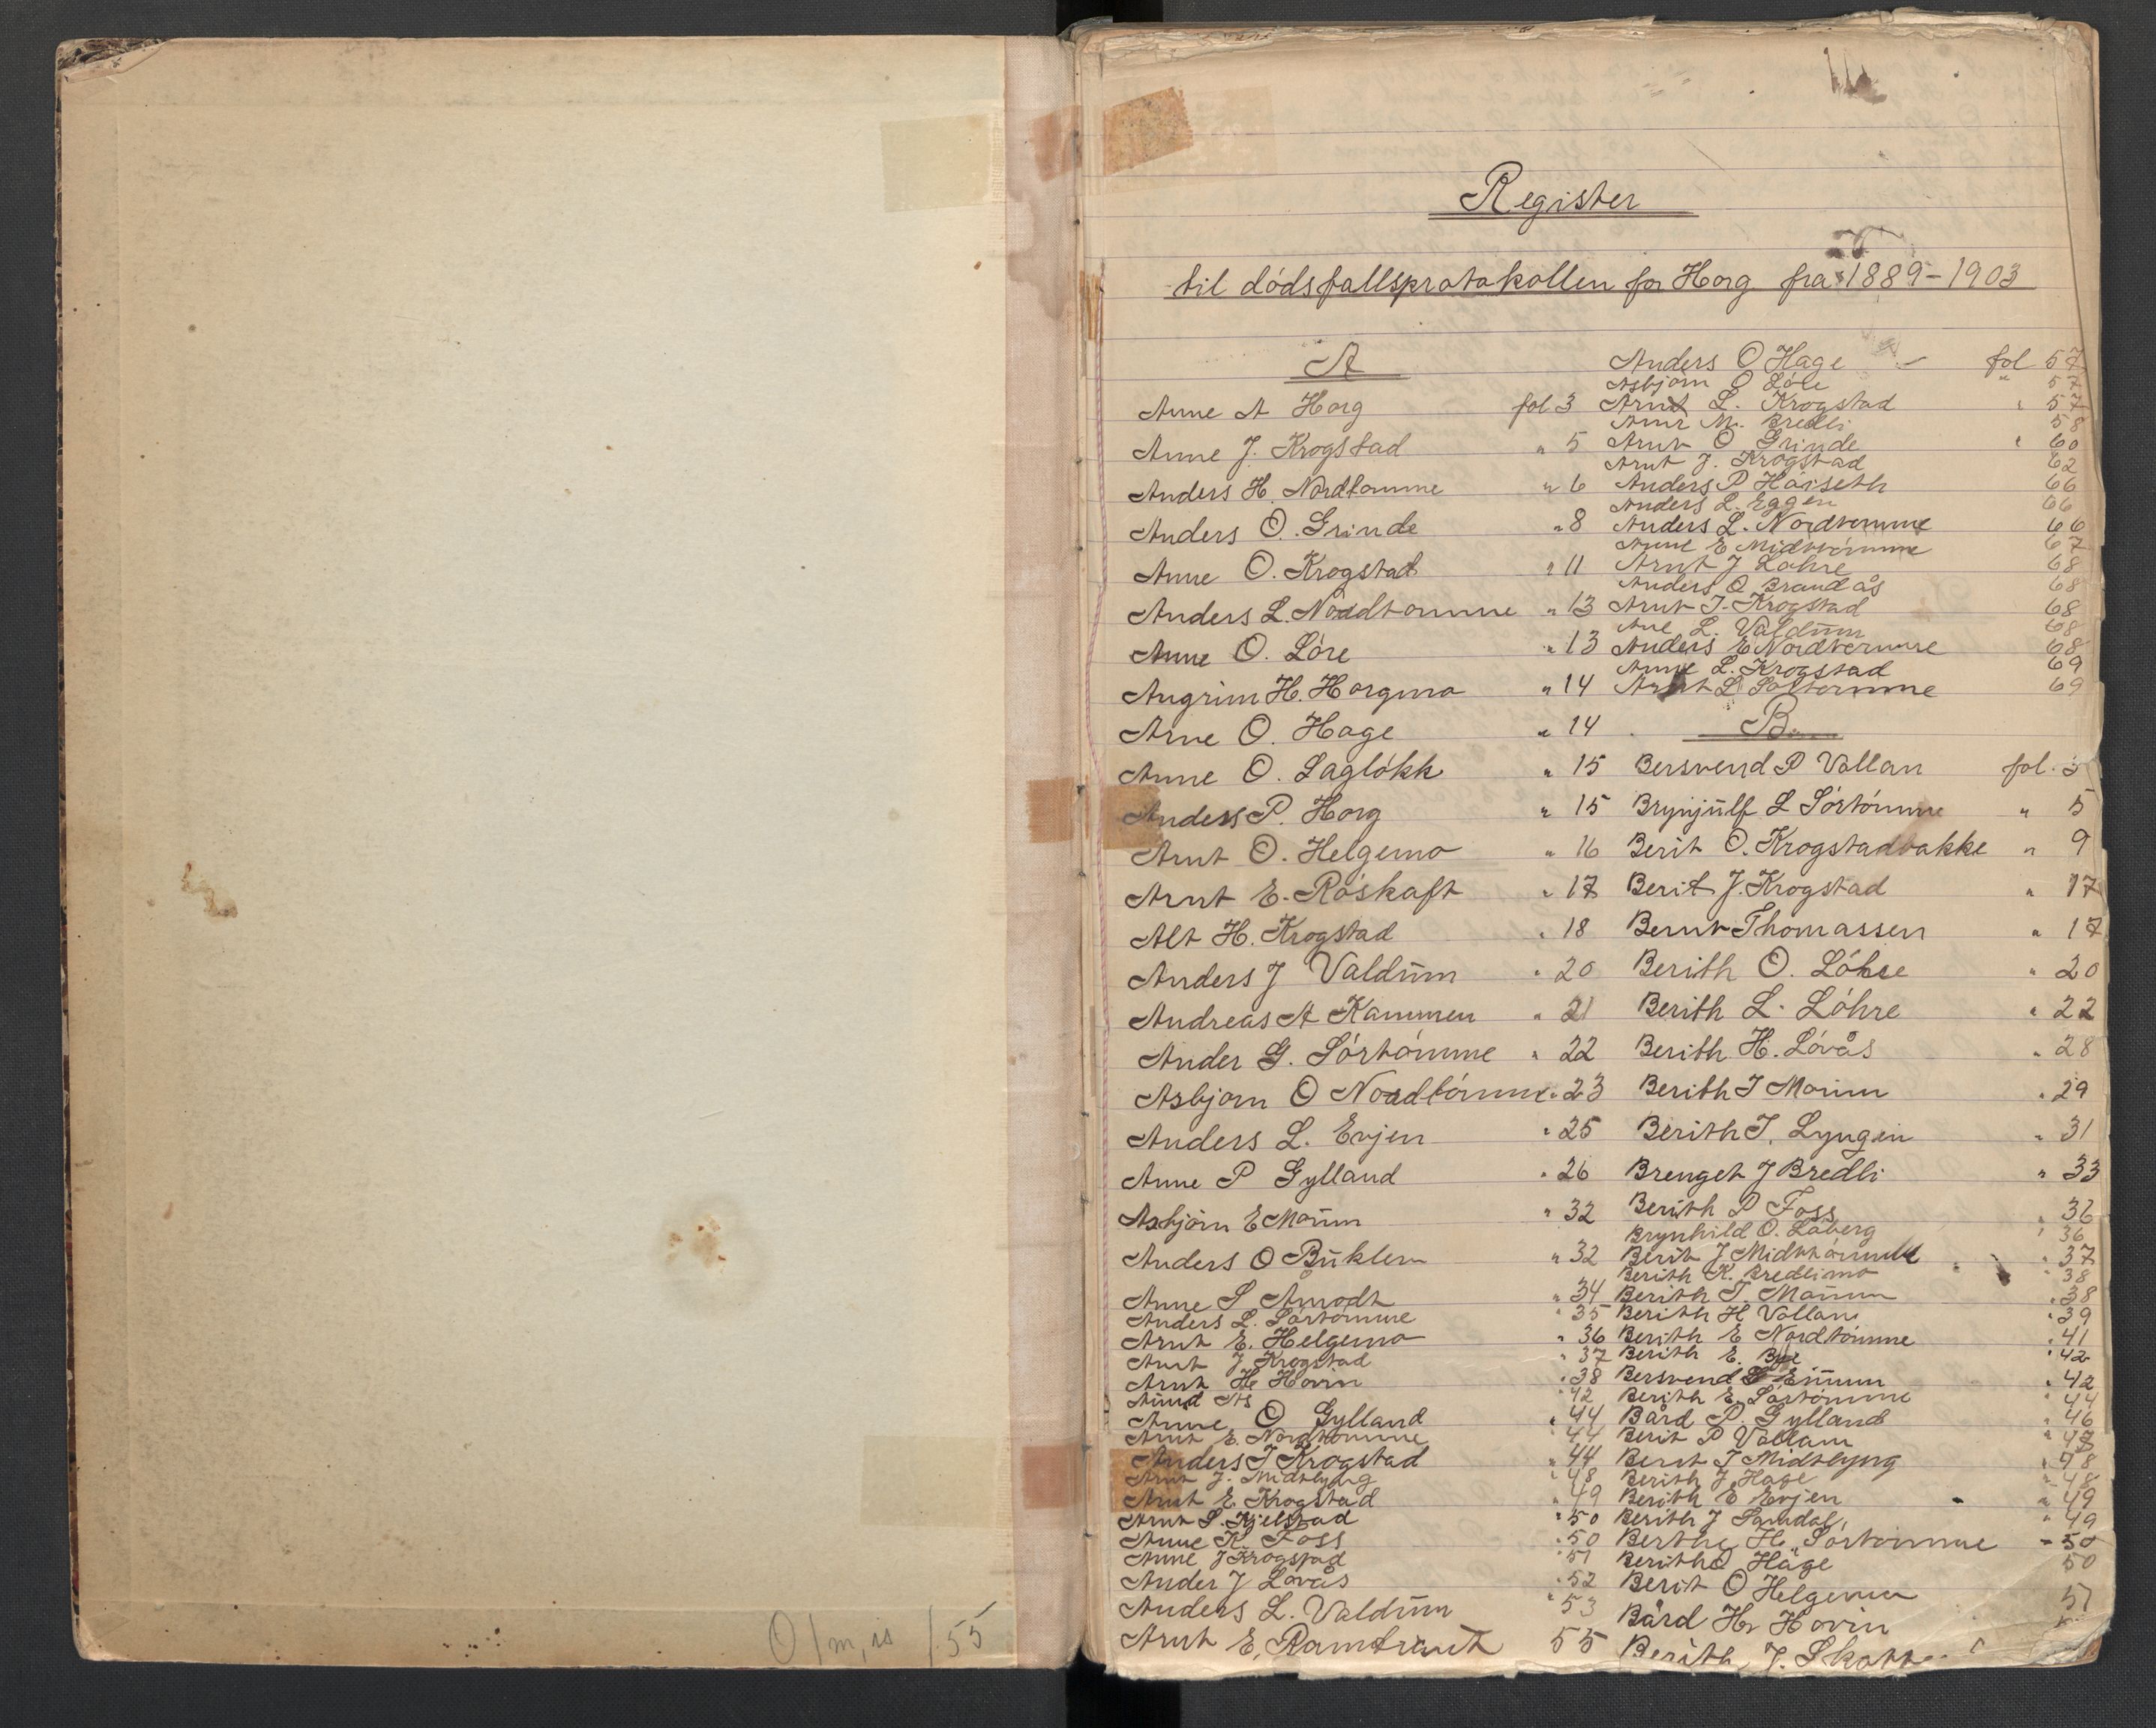 Register
til dódsfallsprotokollen for Horg fra 1889-1903
A
Anne A Horg fol 3
Anne J. Krogstad " 5
Anders H. Nordtomme " 6
Anders O. Grinde " 8
Anne O. Krogstad " 11
Anders L. Nordtomme " 13
Anne O. Lóre " 13
Angrim H. Horgmo " 14
Arne O. Hage " 14
Anne O. Laglókk " 15
Anders P. Horg " 15
Arnt O. Helgemo " 16
Arnt E. Róskaft " 17
Alt H. Krogstad " 18
Anders J Valdum " 20
Andreas A Kammen " 21
Ander G. Sórtómme " 22
Asbjorn O Nordtómme " 23
Anders L. Evjen " 25
Anne P Gylland " 26
Asbjórn E Moum " 32
Anders O Buklen " 32
Anne S Åmodt " 34
Anders L. Sórtómme " 35
Arnt E. Helgemo " 36
Arnt J Krogstad " 37
Arnt H Hovin " 38
42
Anne O Gylland " 44
Arnt E. Nordtomme " 44
Anders J Krogstad " 44
Arnt J. Midtlyng " 48
Arnt E. Krogstad " 49
Arnt S. Kjelstad " 50
Anne K. Foss " 50
Anne J Krogstad " 51
Ander J Lovås " 52
Anders L. Valdum " 53
Arnt E. 55
Anders O Håge fol 57
Asbjorn O Lóre " 57
Arnt L. Krogstad " 57
M. Bredli 58
Arnt O Grinde " 60
Arnt J. Krogstad 62
Anders P Hårseth 66
Anders L. Eggen 66
Anders L. Nordtomme 66
Anne E Midttómme 67
Arnt J Lohre 68
Anders O Brandås 68
Arnt J. Krogstad 68
Ane L. Valdum 68
Anders E Nordtomme 68
Anne L. Krogstad 69
Arnt L Sortomme 69
B.
Bersvend P Vollan fol. 5
Brynjulf L Sórtómme " 5
Berit O. Krogstadbakke " 9
Berit J. Krogstad " 17
Bernt Thomassen " 17
Berith O. Lóhre " 20
Berith L. Lóhre " 22
Berith H. Lóvås " 28
Berith I Moum " 29
Berith I. Lyngen " 31
Brenget J Bredli " 33
Berith P Foss " 36
Brynhild O. Låberg " 36
Berit J. Midttómme " 37
Berith K. Bredlimo 38
Berith T. Moum " 38
Berith H Vollan " 39
Berith E Nordtómme " 41
Berith E. " 42
Bersvend " 42
Berith E. Sórtómme " 44
Bård P. Gylland " 46
Berit P Vollan " 47
Berit I Midtlyng " 48
Berith J Hage " 48
Berith E Evjen " 49
Berith J Samdal " 49
Berthe H. Sórtomme " 50
Berith O Håge 50
Berit O Helgemo 51
Bård H Hovin
Berith J.